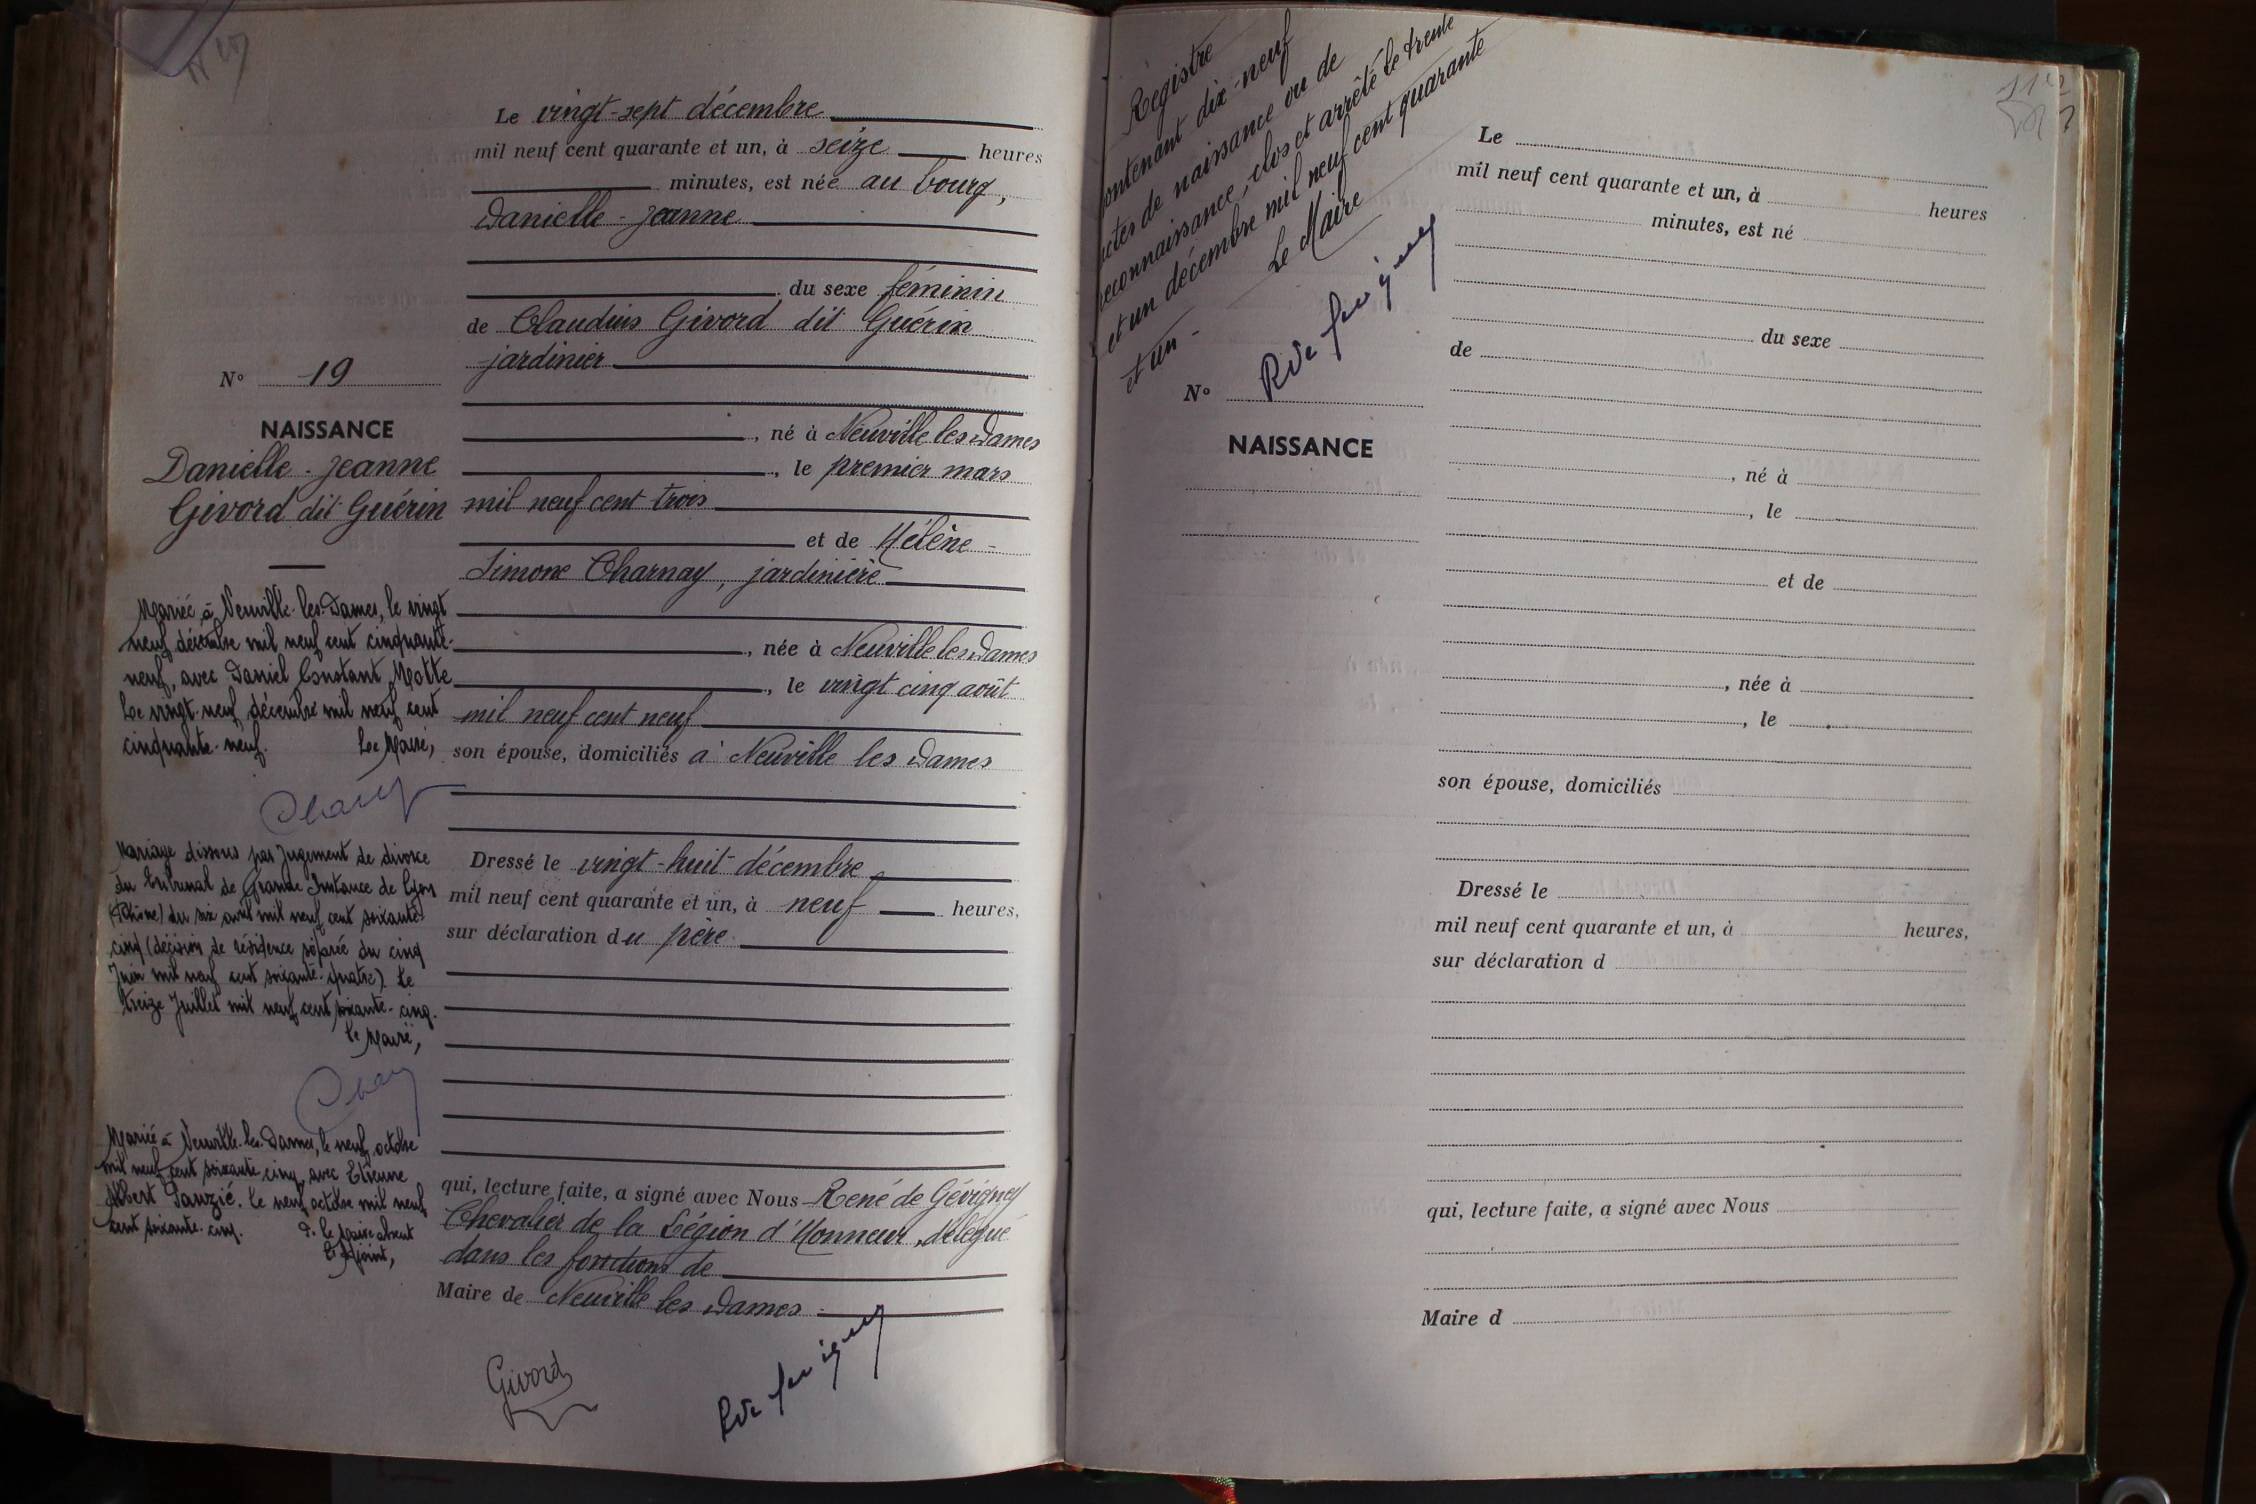 Le vingt-sept décembre
mil neuf cent quarante et un, à seize heures
minutes, est née au bourg,
Danielle - Jeanne
du sexe féminin
de Claudius Givord dit Guérin
jardinier
N° 19
NAISSANCE
Danielle - Jeanne
Givord dit Guérin
, né à Neuville les Dames
, le premier mars
mil neuf cent trois
et de Hélène -
Simone Charnay, jardinière
, née à Neuville les Dames
, le vingt cinq août
mil neuf cent neuf
son épouse, domiciliés à Neuville les Dames
Dressé le vingt-huit décembre
mil neuf cent quarante et un, à neuf heures,
sur déclaration du père
qui, lecture faite, a signé avec Nous René de Gévigney
Chevalier de la Légion d'Honneur, délégué
dans les fonctions de
Maire de Neuville les Dames -
Givord
Mariée à Neuville-les-Dames, le vingt
neuf décembre mil neuf cent cinquante-
neuf, avec Daniel Constant Motte
Le vingt-neuf décembre mil neuf cent
cinquante-neuf. Le Maire,
Mariage dissous par Jugement de divorce
du Tribunal de Grande Instance de Lyon
(Rhône) du six avril mil neuf cent soixante
cinq (décision de résidence séparée du cinq
Juin mil neuf cent soixante-quatre). Le
treize Juillet mil neuf cent soixante-cinq.
Le Maire,
Mariée à Neuville-les-Dames, le neuf octobre
mil neuf cent soixante cinq, avec Etienne
Albert Pauzié. Le neuf octobre mil neuf
cent soixante-cinq. P. le Maire absent
L'Adjoint,
Registre
contenant dix-neuf
actes de naissance ou de
reconnaissance, clos et arrêté le trente
et un décembre mil neuf cent quarante
et un -
Le Maire
Le
mil neuf cent quarante et un, à heures
minutes, est né
du sexe
de
N°
NAISSANCE
, né à
, le
et de
, née à
, le
son épouse, domiciliés
Dressé le
mil neuf cent quarante et un, à heures,
sur déclaration d
qui, lecture faite, a signé avec Nous
Maire d